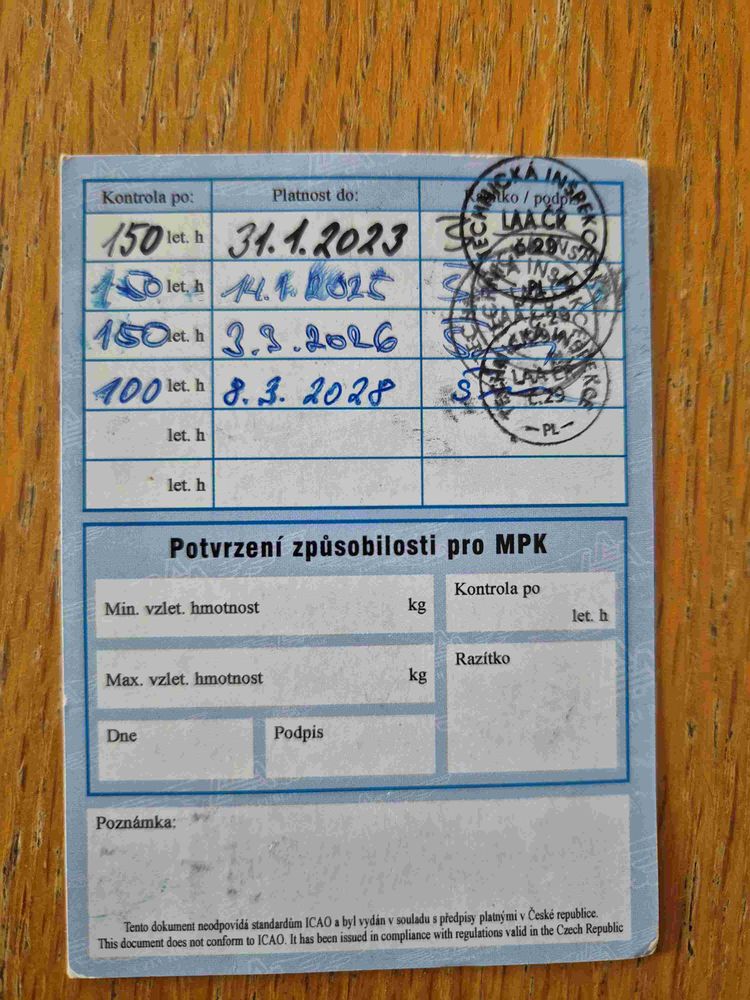 Kontrola po: Platnost do: Razítko / podpis
150 let. h 31.1.2023
150 let. h 14.1.2025
150 let. h 3.3.2026
100 let. h 8.3.2028
let. h
let. h
TECHNICKÁ INSPEKCE
LAA ČR
č.29
-PL-
TECHNICKÁ INSPEKCE
LAA ČR
č.29
-PL-
Potvrzení způsobilosti pro MPK
Min. vzlet. hmotnost kg
Kontrola po
let. h
Max. vzlet. hmotnost kg
Razítko
Dne
Podpis
Poznámka:
Tento dokument neodpovídá standardům ICAO a byl vydán v souladu s předpisy platnými v České republice.
This document does not conform to ICAO. It has been issued in compliance with regulations valid in the Czech Republic